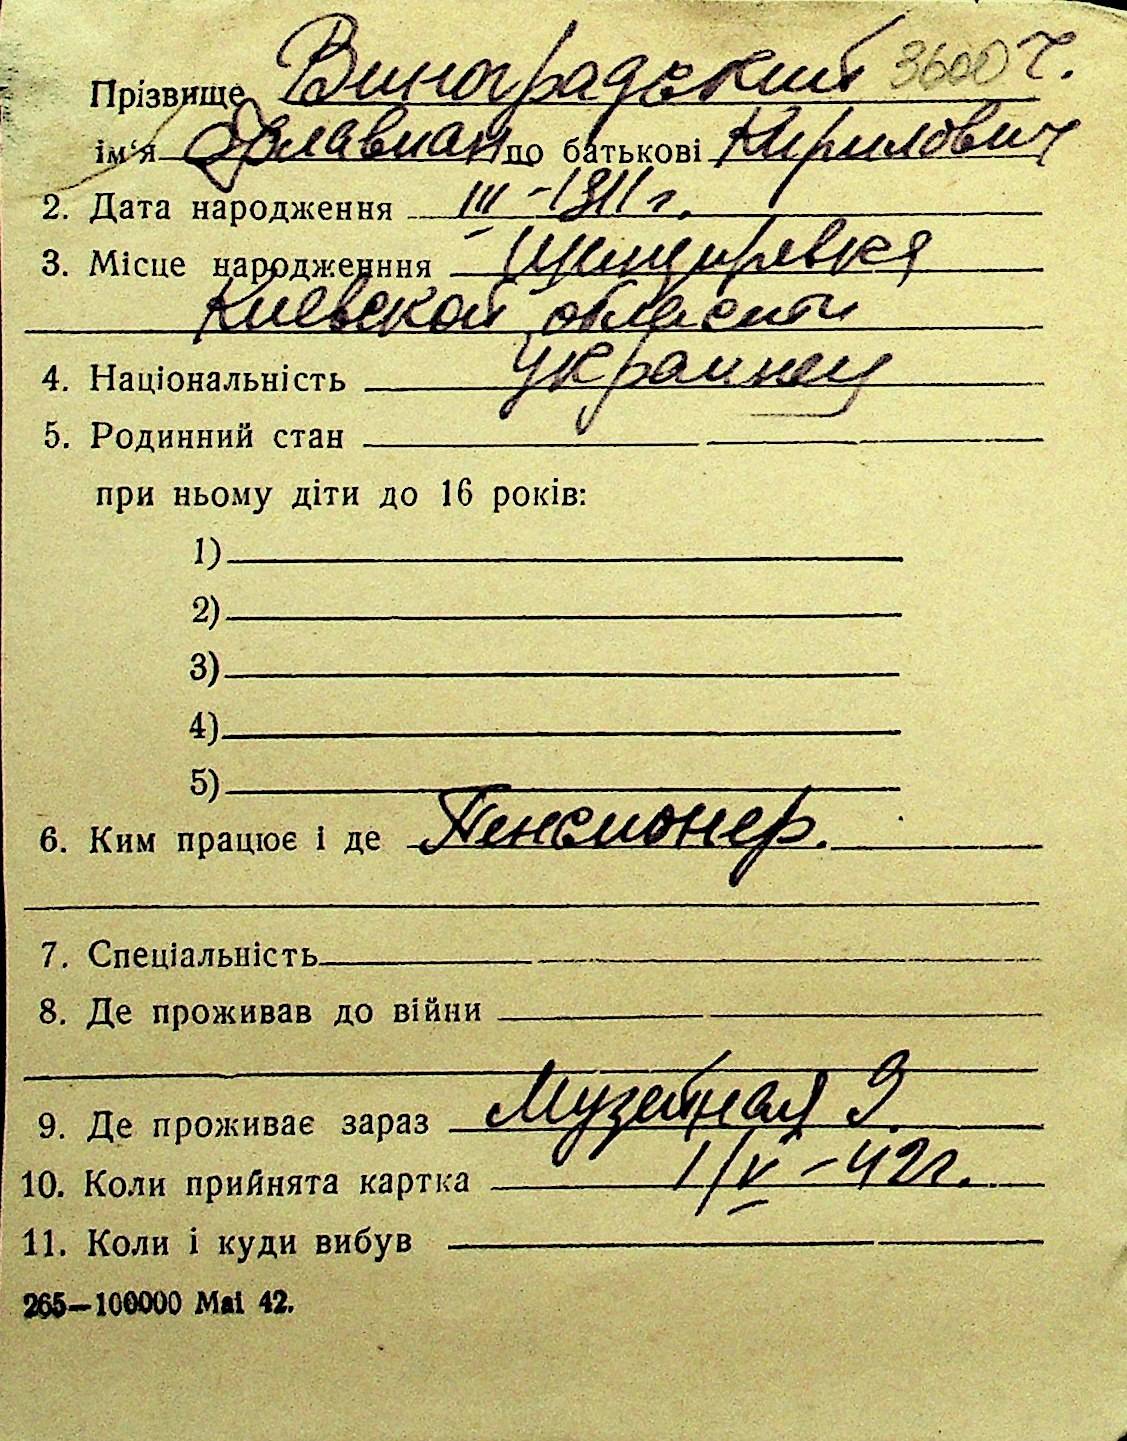 Прізвище Виноградский 3600 Ч.
ім'я Флавиан по батькові Кирилович
2. Дата народження III - 1911 г.
3. Місце народженння
Киевской области
4. Національність Украинец
5. Родинний стан
при ньому діти до 16 років:
1)
2)
3)
4)
5)
6. Ким працює і де Пенсионер.
7. Спеціальність
8. Де проживав до війни
9. Де проживає зараз Музейная 9
10. Коли прийнята картка 1/V - 42 г.
11. Коли і куди вибув
265—100000 Mai 42.